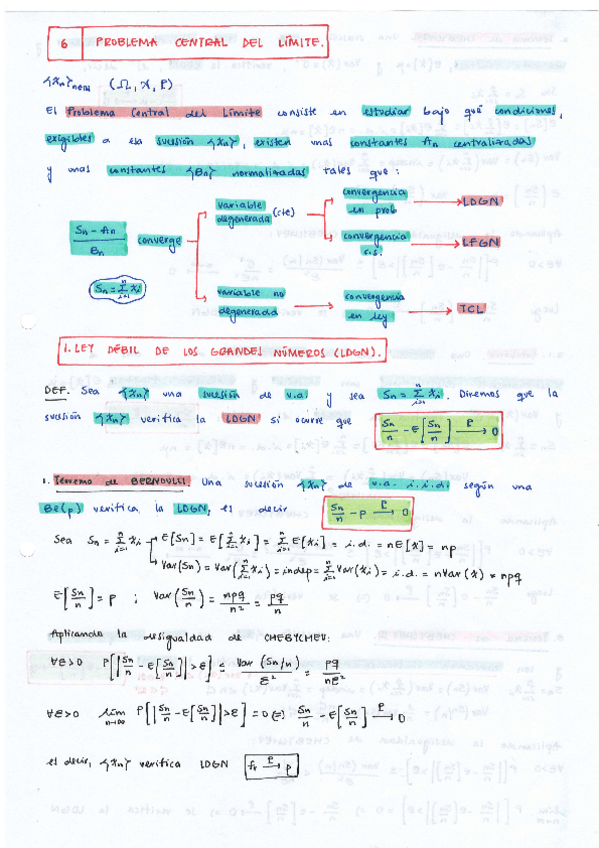 6 PROBLEMA CENTRAL DEL LÍMITE.
{Xn}n∈ℕ (Ω, X, P)
El Problema Central del Límite consiste en estudiar bajo qué condiciones,
exigibles a esa sucesión {Xn}, existen unas constantes An centralizadas
y unas constantes {Bn} normalizadas tales que:
(Sn - An)/Bn converge
Sn = Σ(i=1..n) Xi
variable degenerada (cte)
convergencia en prob → LDGN
convergencia c.s. → LFGN
variable no degenerada → convergencia en ley → TCL
1. LEY DÉBIL DE LOS GRANDES NÚMEROS (LDGN).
DEF. Sea {Xn} una sucesión de v.a. y sea Sn = Σ(i=1..n) Xi. Diremos que la
sucesión {Xn} verifica la LDGN si ocurre que Sn/n - E[Sn/n] —P→ 0
1. Teorema de BERNOULLI Una sucesión {Xn} de v.a. i.i.d. según una
Be(p) verifica la LDGN, es decir Sn/n - p —P→ 0
Sea Sn = Σ(i=1..n) Xi → E[Sn] = E[Σ(i=1..n) Xi] = Σ(i=1..n) E[Xi] = i.d. = nE[X] = np
→ Var(Sn) = Var(Σ(i=1..n) Xi) = indep = Σ(i=1..n) Var(Xi) = i.d. = nVar(X) = npq
E[Sn/n] = p ; Var(Sn/n) = npq/n² = pq/n
Aplicando la desigualdad de CHEBYCHEV:
∀ε>0 P[|Sn/n - E[Sn/n]| > ε] ≤ Var(Sn/n)/ε² = pq/nε²
∀ε>0 lim(n→∞) P[|Sn/n - E[Sn/n]| > ε] = 0 (=) Sn/n - E[Sn/n] —P→ 0
es decir, {Xn} verifica LDGN fr —P→ p